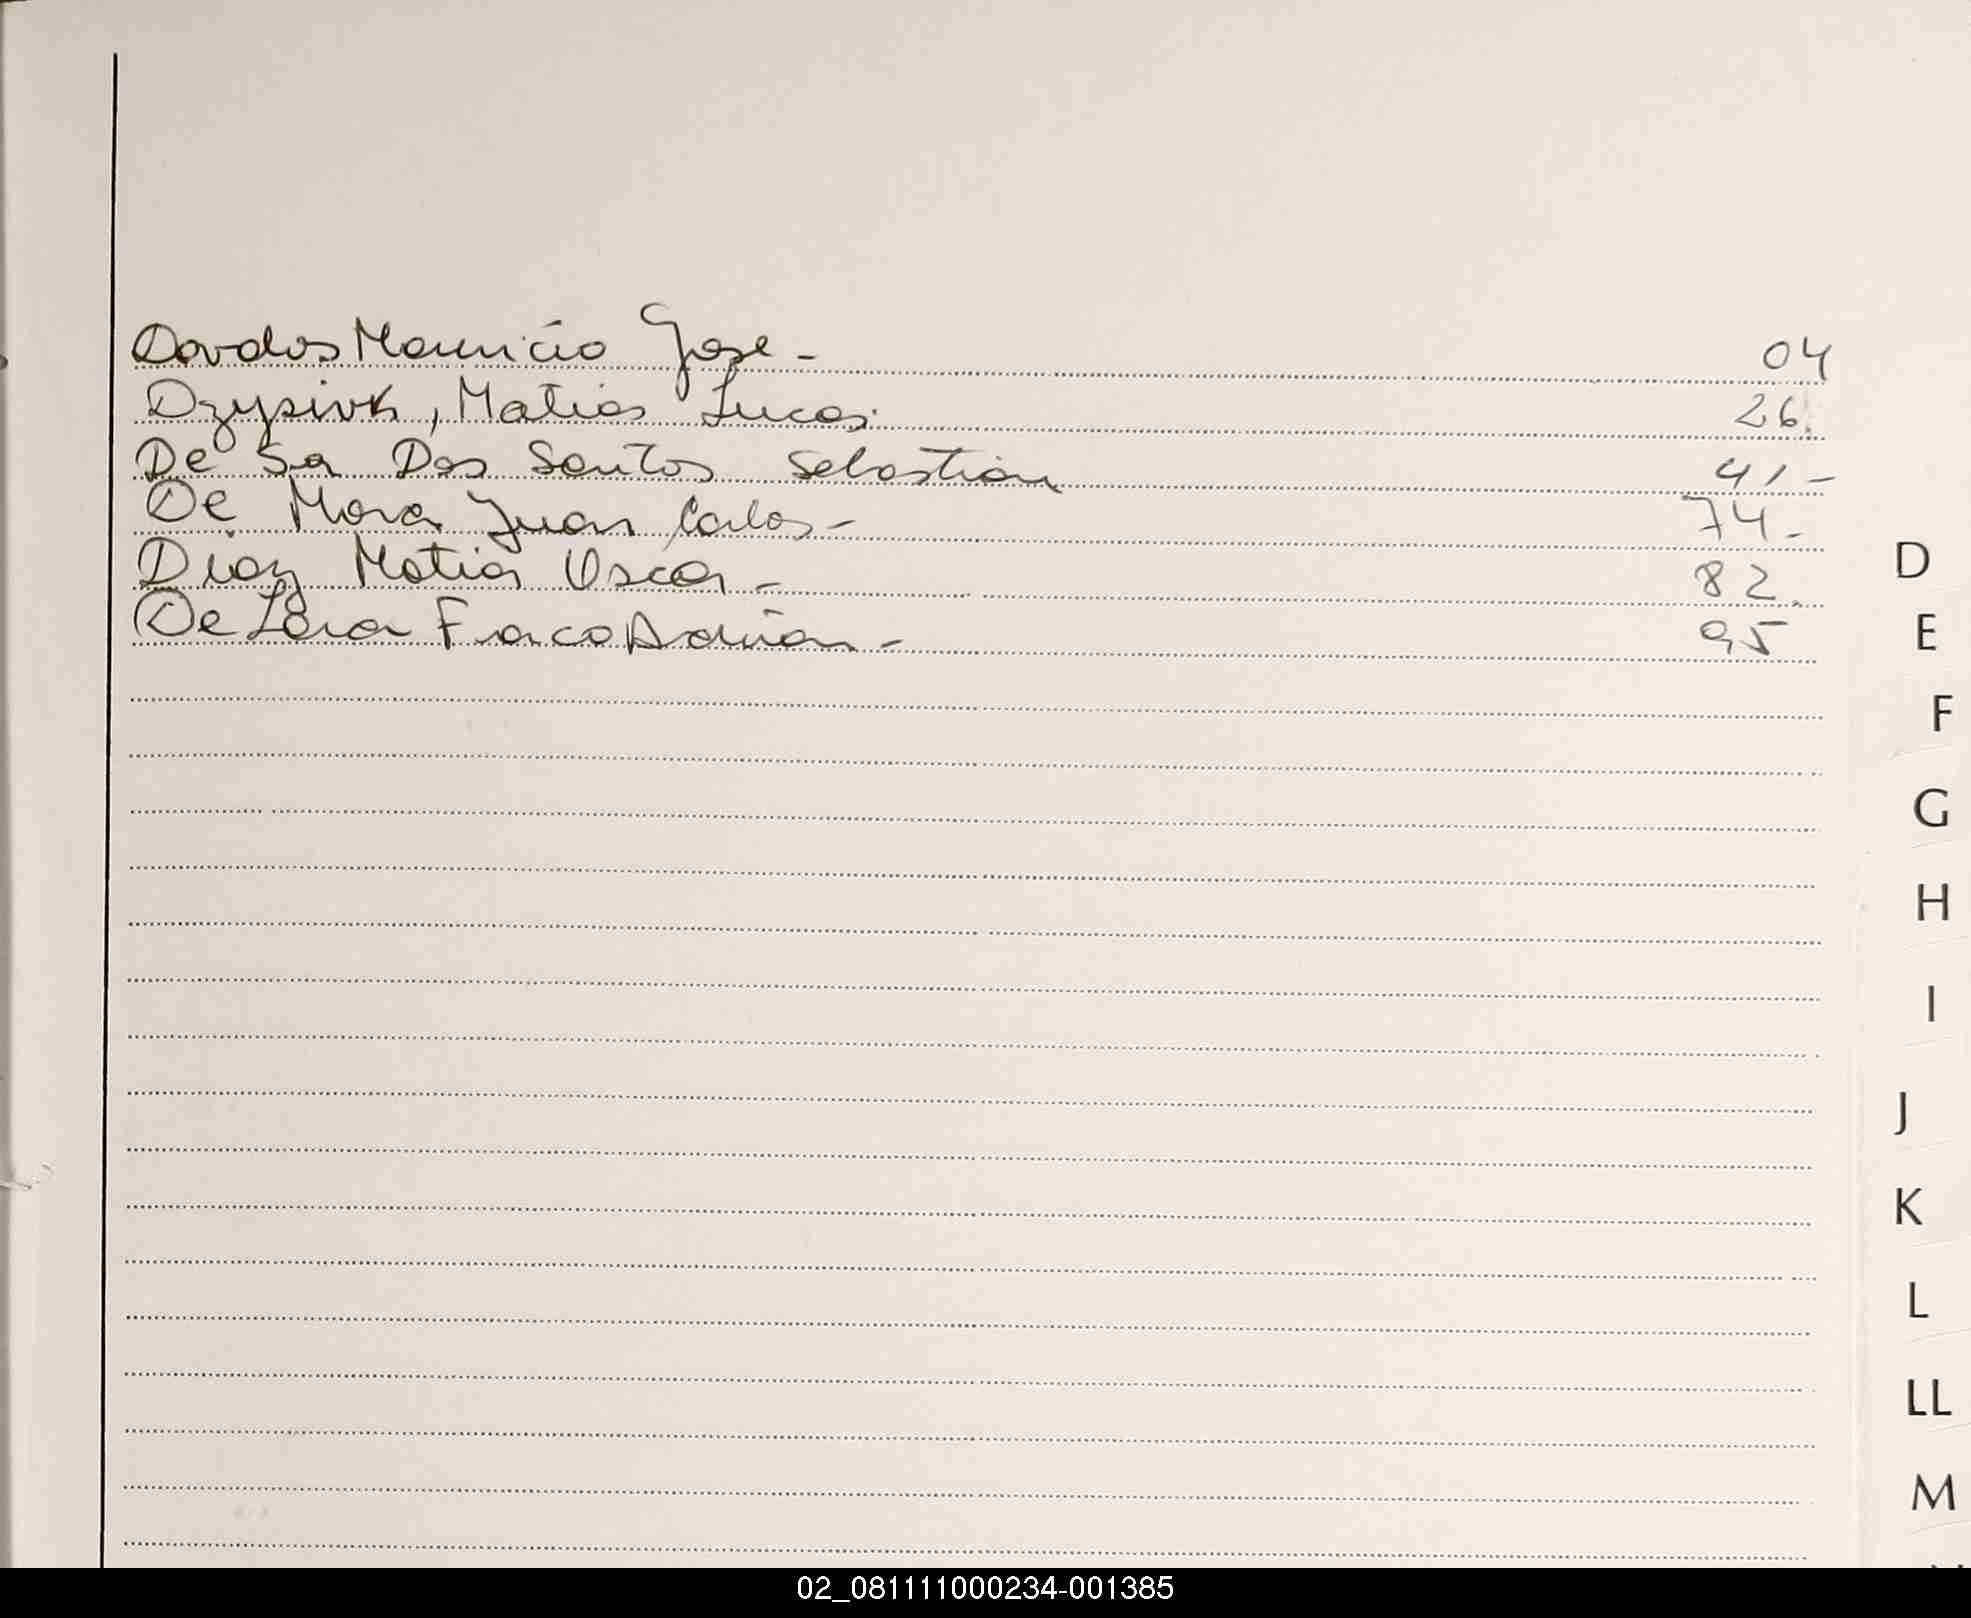 Davalos Mauricio Jose - 04
Dzysiuk, Matias Lucas. 26.
De Sa Dos Santos Sebastian 41 -
De Mora Juan Carlos - 74 -
Diaz Matias Oscar - 82.
De Lara Adrian - 95
D
E
F
G
H
I
J
K
L
LL
M
02_081111000234-001385